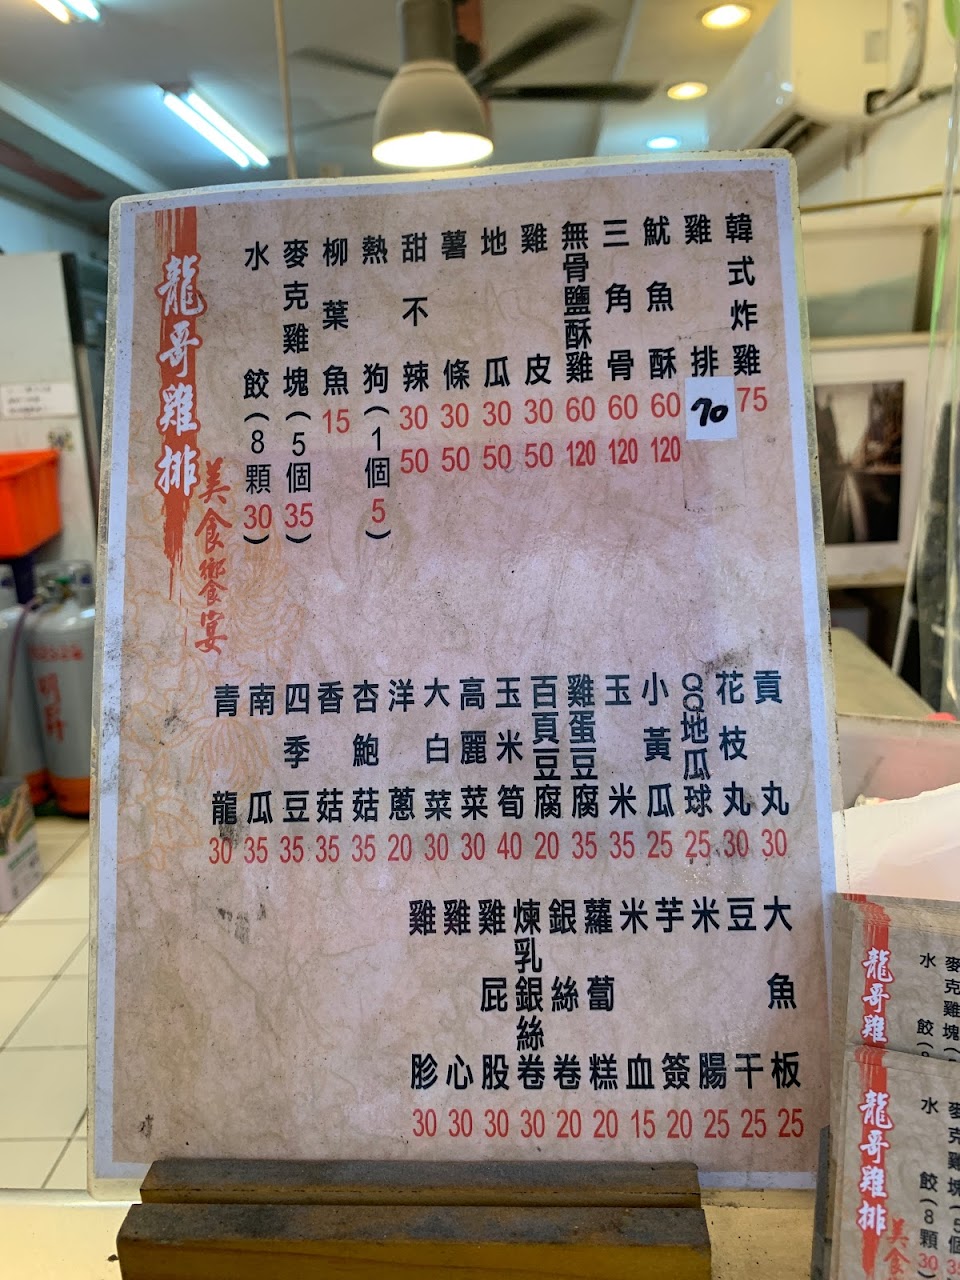 龍哥雞排
美食饗宴
韓式炸雞 75
雞排 70
魷魚酥 60 120
三角骨 60 120
無骨鹽酥雞 60 120
雞皮 30 50
地瓜 30 50
薯條 30 50
甜不辣 30 50
熱狗(1個5)
柳葉魚 15
麥克雞塊(5個35)
水餃(8顆30)
貢丸 30
花枝丸 30
QQ地瓜球 25
小黃瓜 25
玉米 35
雞蛋豆腐 35
百頁豆腐 20
玉米筍 40
高麗菜 30
大白菜 30
洋蔥 20
杏鮑菇 35
香菇 35
四季豆 35
南瓜 35
青龍 30
大魚板 25
豆干 25
米腸 25
芋簽 20
米血 15
蘿蔔糕 20
銀絲卷 20
煉乳銀絲卷 30
雞屁股 30
雞心 30
雞胗 30
龍哥雞
麥克雞塊(
水餃(8
龍哥雞排
美食
麥克雞塊(5個
水餃(8顆30